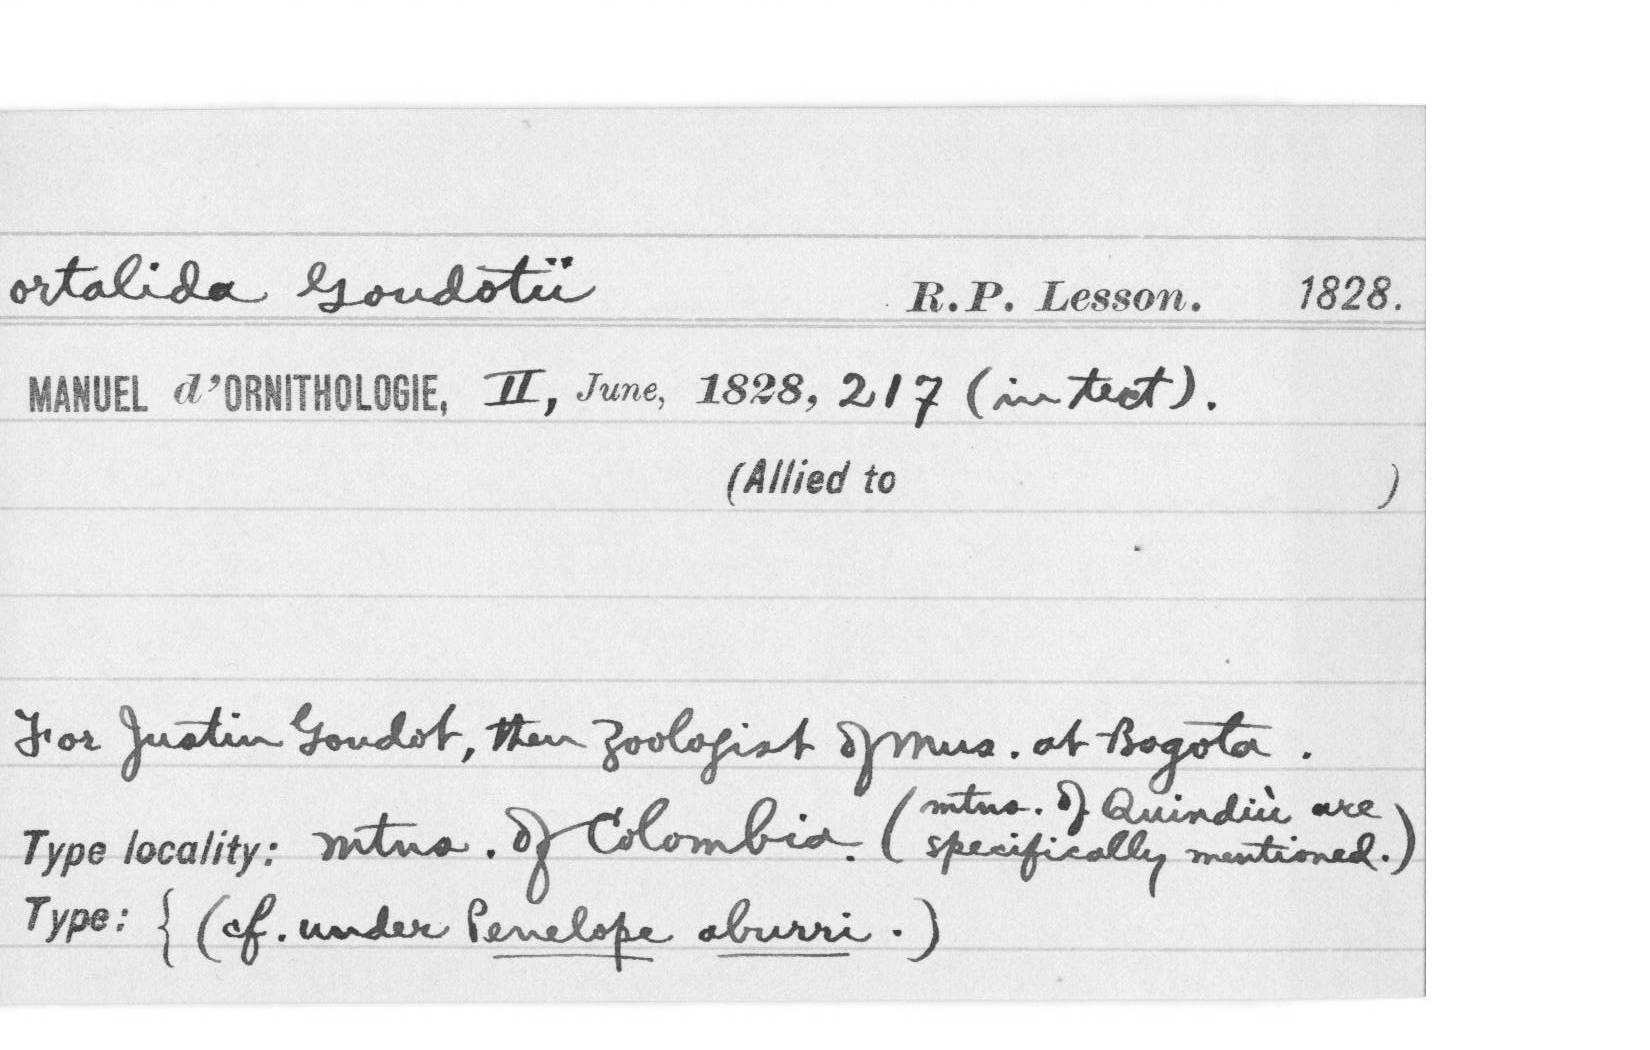 ortalida Goudotii R.P. Lesson. 1828.
MANUEL d'ORNITHOLOGIE, II, June, 1828, 217 (in text).
(Allied to )
For Justin Goudot, then Zoologist of Mus. at Bogota.
Type locality: mtns. of Colombia. (mtns. of Quindiù are specifically mentioned.)
Type: { (cf. under Penelope aburri.)